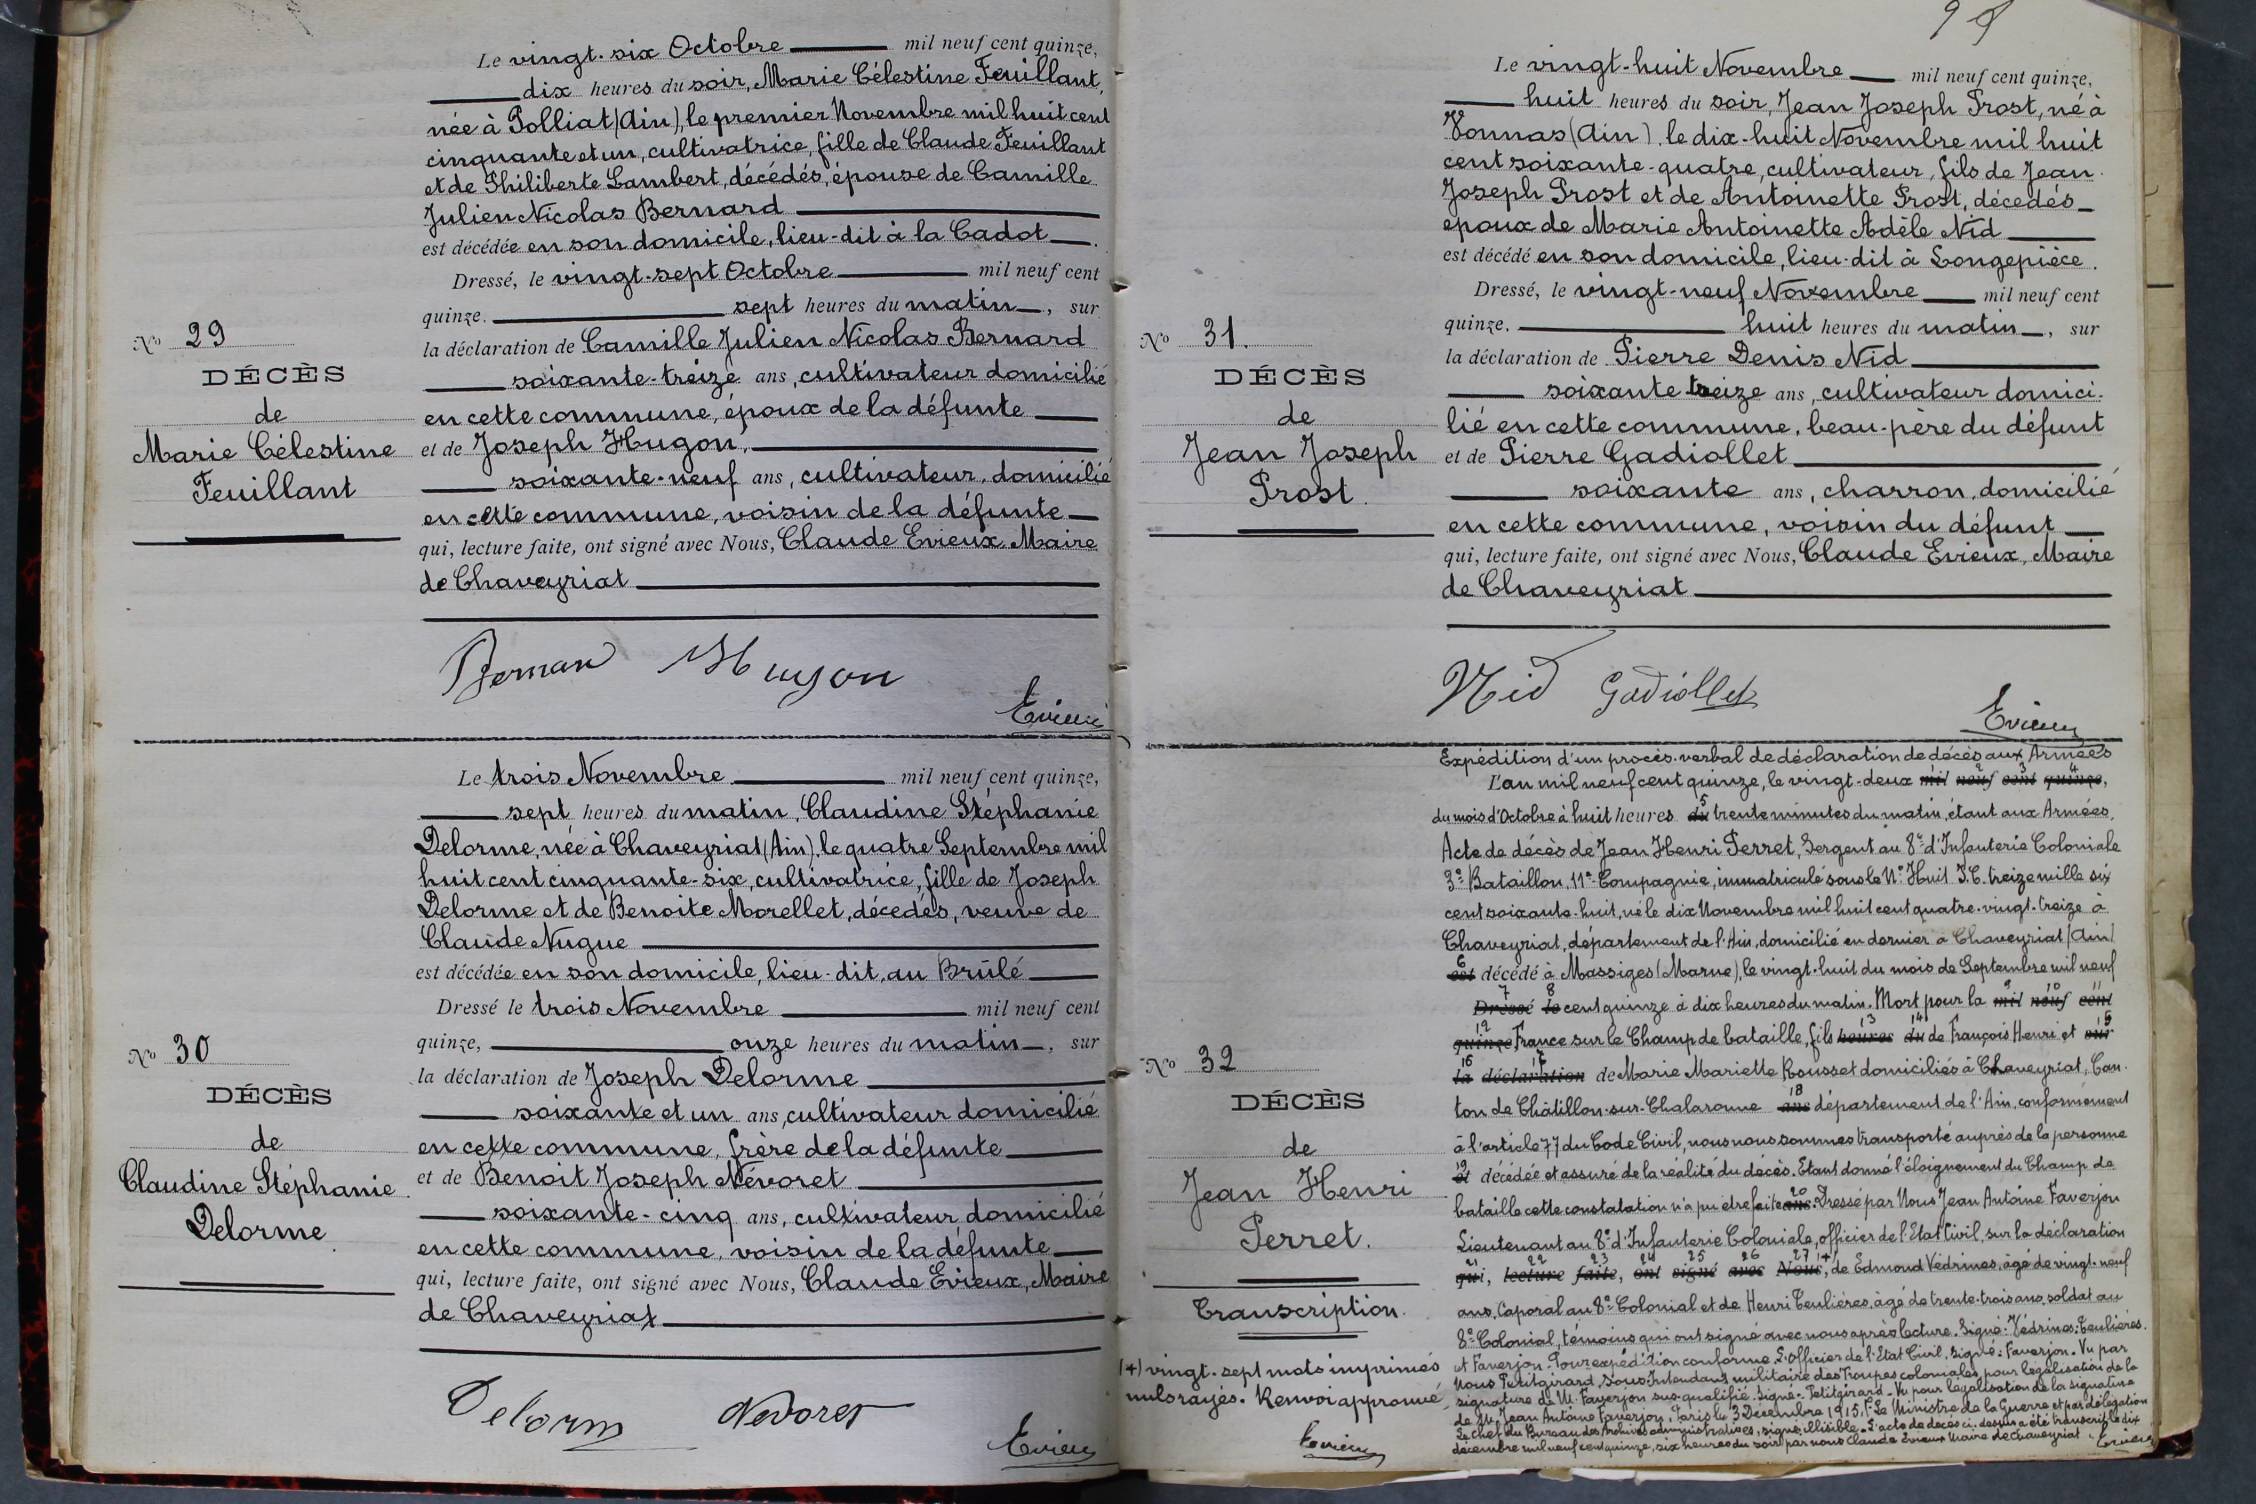 Le vingt-six Octobre mil neuf cent quinze,
dix heures du soir, Marie Célestine Feuillant,
née à Polliat (Ain), le premier Novembre mil huit cent
cinquante et un, cultivatrice, fille de Claude Feuillant
et de Philiberte Lambert, décédés, épouse de Camille
Julien Nicolas Bernard
est décédée en son domicile, lieu-dit à la Cadot
Dressé, le vingt-sept Octobre mil neuf cent
quinze. sept heures du matin, sur
la déclaration de Camille Julien Nicolas Bernard
soixante-treize ans, cultivateur domicilié
en cette commune, époux de la défunte
et de Joseph Hugon,
soixante-neuf ans, cultivateur, domicilié
en cette commune, voisin de la défunte
qui, lecture faite, ont signé avec Nous, Claude Evieux, Maire
de Chaveyriat
No 29
DÉCÈS
de
Marie Célestine
Feuillant
Bernan Hugon
Evieux
Le trois Novembre mil neuf cent quinze,
sept heures du matin, Claudine Stéphanie
Delorme, née à Chaveyriat (Ain), le quatre Septembre mil
huit cent cinquante-six, cultivatrice, fille de Joseph
Delorme et de Benoite Morellet, décédés, veuve de
Claude Nugue
est décédée en son domicile, lieu-dit, au Brûlé
Dressé le trois Novembre mil neuf cent
quinze, onze heures du matin, sur
la déclaration de Joseph Delorme
soixante et un ans, cultivateur domicilié
en cette commune, frère de la défunte
et de Benoit Joseph Névoret
soixante-cinq ans, cultivateur, domicilié
en cette commune, voisin de la défunte
qui, lecture faite, ont signé avec Nous, Claude Evieux, Maire
de Chaveyriat
No 30
DÉCÈS
de
Claudine Stéphanie
Delorme
Delorm Nevoret
Evieux
Le vingt-huit Novembre mil neuf cent quinze,
huit heures du soir, Jean Joseph Prost, né à
Vonnas (Ain), le dix-huit Novembre mil huit
cent soixante-quatre, cultivateur, fils de Jean
Joseph Prost et de Antoinette Prost, décédés
époux de Marie Antoinette Adèle Nid
est décédé en son domicile, lieu-dit à Longepièce.
Dressé, le vingt-neuf Novembre mil neuf cent
quinze. huit heures du matin, sur
la déclaration de Pierre Denis Nid
soixante treize ans, cultivateur domici-
lié en cette commune, beau-père du défunt
et de Pierre Gadiollet
soixante ans, charron, domicilié
en cette commune, voisin du défunt
qui, lecture faite, ont signé avec Nous, Claude Evieux, Maire
de Chaveyriat
No 31.
DÉCÈS
de
Jean Joseph
Prost.
Nid Gadiollet
Evieux
Expédition d'un procès-verbal de déclaration de décès aux Armées
L'an mil neuf cent quinze, le vingt-deux mil neuf cent quinze,
du mois d'Octobre à huit heures du trente minutes du matin, étant aux Armées.
Acte de décès de Jean Henri Perret, Sergent au 8e d'Infanterie Coloniale
3e Bataillon, 11e Compagnie, immatriculé sous le No Huit I.C. treize mille six
cent soixante-huit, né le dix Novembre mil huit cent quatre-vingt-treize à
Chaveyriat, département de l'Ain, domicilié en dernier à Chaveyriat (Ain)
est décédé à Massiges (Marne), le vingt-huit du mois de Septembre mil neuf
Dressé le cent quinze à dix heures du matin. Mort pour la mil neuf cent
quinze France sur le Champ de bataille, fils heures du de François Henri et sur
la déclaration de Marie Mariette Rousset domiciliés à Chaveyriat, Can-
ton de Châtillon-sur-Chalaronne ans département de l'Ain, conformément
à l'article 77 du Code Civil, nous nous sommes transporté auprès de la personne
et décédée et assuré de la réalité du décès. Etant donné l'éloignement du Champ de
bataille cette constatation n'a pu etre faite ans. Dressé par Nous Jean Antoine Faverjon
Lieutenant au 8e d'Infanterie Coloniale, officier de l'Etat Civil, sur la déclaration
qui, lecture faite, ont signé avec Nous, (+) de Edmond Védrines, âgé de vingt-neuf
ans, Caporal au 8e Colonial et de Henri Teulières, âgé de trente-trois ans, soldat au
8e Colonial, témoins qui ont signé avec nous après lecture. Signé: Védrines, Teulières.
et Faverjon. Pour expédition conforme. L'officier de l'Etat Civil, signé: Faverjon. Vu par
Nous Petitgirard, Sous-Intendant militaire des Troupes coloniales pour légalisation de la
signature de M. Faverjon sus-qualifié. Signé: Petitgirard. Vu pour légalisation de la signature
de M. Jean Antoine Faverjon, Paris le 3 Décembre 1915. P. Le Ministre de la Guerre et par délégation
Le chef du Bureau des Archives administratives, signé, illisible. L'acte de décès ci-dessus a été transcrit le dix
décembre mil neuf cent quinze, six heures du soir par nous Claude Evieux Maire de Chaveyriat Evieux
No 32
DÉCÈS
de
Jean Henri
Perret.
Transcription.
(+) vingt-sept mots imprimés
nuls rayés. Renvoi approuvé
Evieux